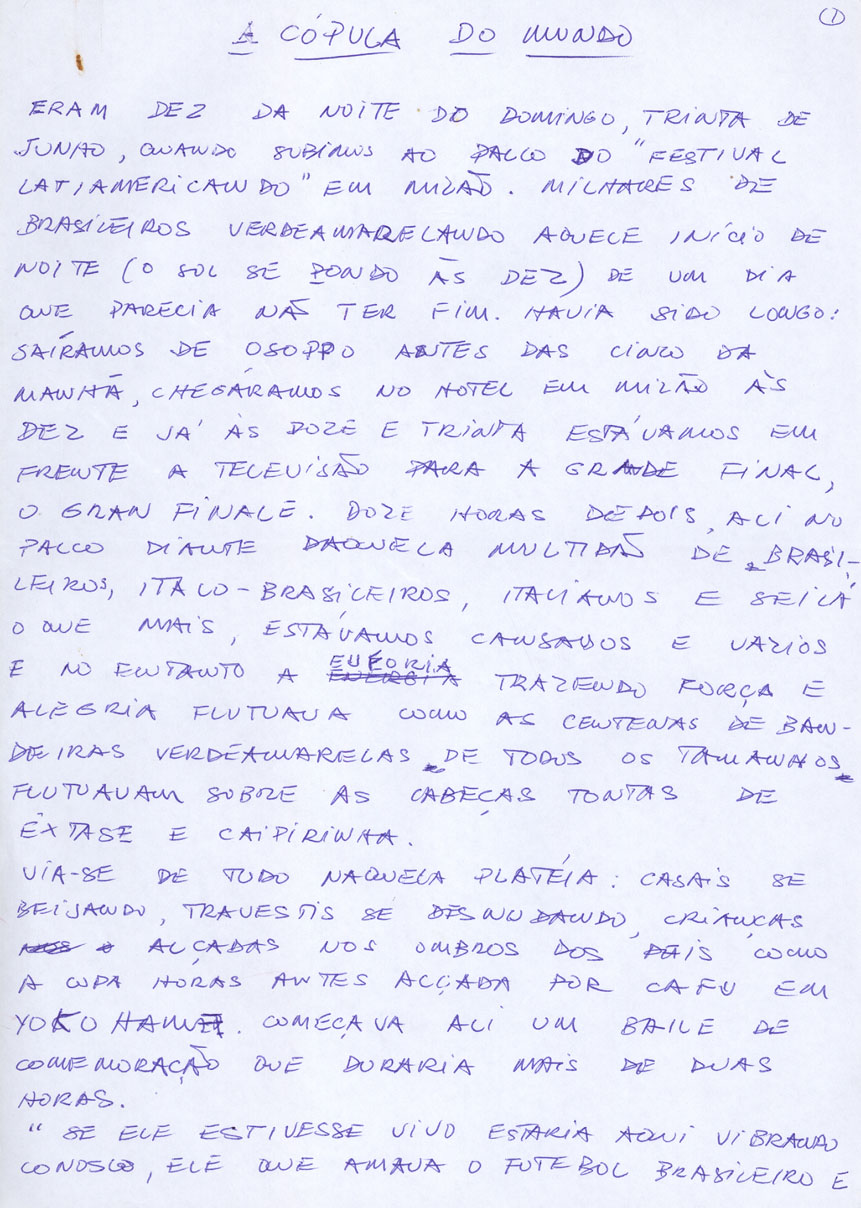 ①
A CÓPULA DO MUNDO
ERAM DEZ DA NOITE DO DOMINGO, TRINTA DE
JUNHO, QUANDO SUBIMOS AO PALCO DO "FESTIVAL
LATIAMERICANDO" EM MILÃO. MILHARES DE
BRASILEIROS VERDEAMARELANDO AQUELE INÍCIO DE
NOITE (O SOL SE PONDO ÀS DEZ) DE UM DIA
QUE PARECIA NÃO TER FIM. HAVIA SIDO LONGO:
SAÍRAMOS DE OSOPPO ANTES DAS CINCO DA
MANHÃ, CHEGÁRAMOS NO HOTEL EM MILÃO ÀS
DEZ E JÁ ÀS DOZE E TRINTA ESTÁVAMOS EM
FRENTE A TELEVISÃO PARA A GRANDE FINAL,
O GRAN FINALE. DOZE HORAS DEPOIS, ALI NO
PALCO DIANTE DAQUELA MULTIDÃO DE BRASI-
LEIROS, ITALO-BRASILEIROS, ITALIANOS E SEI LÁ
O QUE MAIS, ESTÁVAMOS CANSADOS E VAZIOS
E NO ENTANTO A EUFORIA TRAZENDO FORÇA E
ALEGRIA FLUTUAVA COMO AS CENTENAS DE BAN-
DEIRAS VERDEAMARELAS DE TODOS OS TAMANHOS
FLUTUAVAM SOBRE AS CABEÇAS TONTAS DE
ÊXTASE E CAIPIRINHA.
VIA-SE DE TUDO NAQUELA PLATÉIA: CASAIS SE
BEIJANDO, TRAVESTIS SE DESNUDANDO, CRIANÇAS
ALÇADAS NOS OMBROS DOS PAIS COMO
A COPA HORAS ANTES ALÇADA POR CAFU EM
YOKOHAMA. COMEÇAVA ALI UM BAILE DE
COMEMORAÇÃO QUE DURARIA MAIS DE DUAS
HORAS.
"SE ELE ESTIVESSE VIVO ESTARIA AQUI VIBRANDO
CONOSCO, ELE QUE AMAVA O FUTEBOL BRASILEIRO E